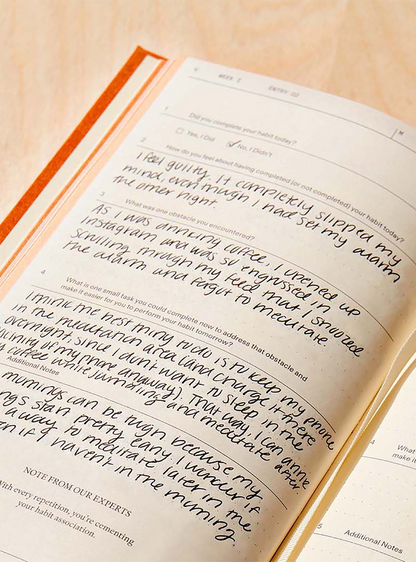 WEEK 1 ENTRY 02
1
Did you complete your habit today?
Yes, I Did No, I Didn't
2
How do you feel about having completed (or not completed) your habit today?
I feel guilty. It completely slipped my
mind, even though I had set my alarm
the other night.
3
What was one obstacle you encountered?
As I was drinking coffee, I opened up
Instagram and was so engrossed in
scrolling through my feed that I snoozed
the alarm and forgot to meditate
4
What is one small task you could complete now to address that obstacle and
make it easier for you to perform your habit tomorrow?
I think the best thing to do is to keep my phone
in the meditation area (and charge it there
overnight since I don't want to sleep in the
vicinity of my phone anyway). That way, I can drink
coffee while journaling and meditate after.
Additional Notes
mornings can be tough because my
start pretty early. I wonder if
a way to meditate later in the
if I haven't in the morning.
NOTE FROM OUR EXPERTS
With every repetition, you're cementing
your habit association.
4
What
make it
5
Additional Notes